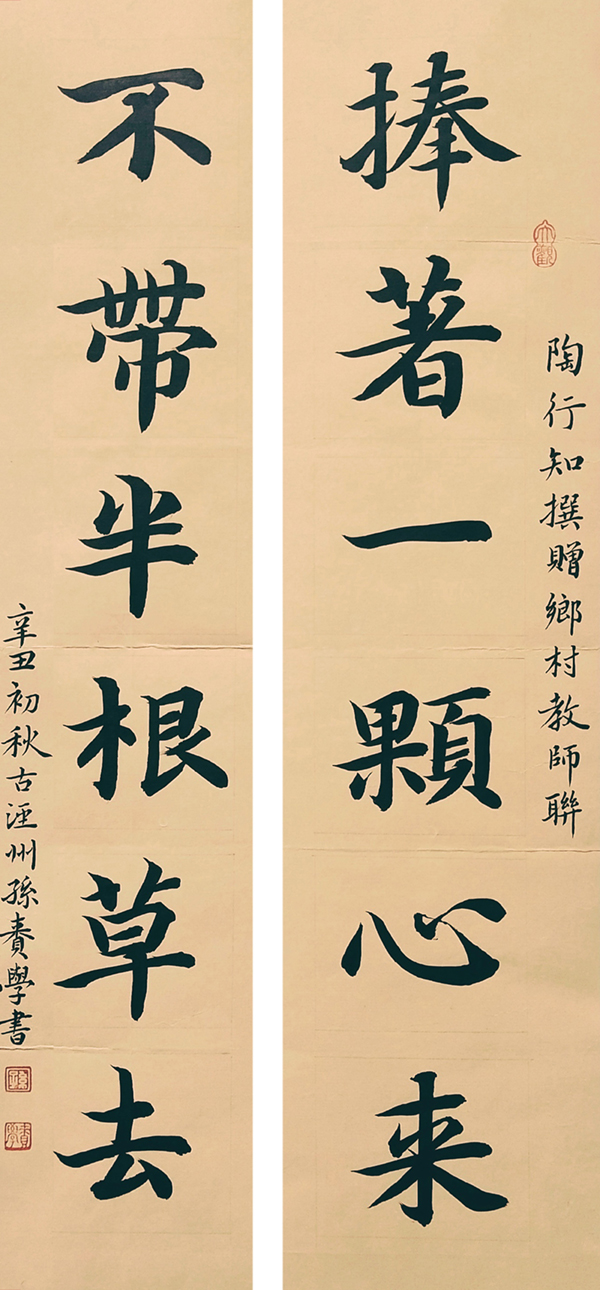 大觀
陶行知撰贈鄉村教師聯
捧著一顆心来
不帶半根草去
辛丑初秋古涇州孫學書